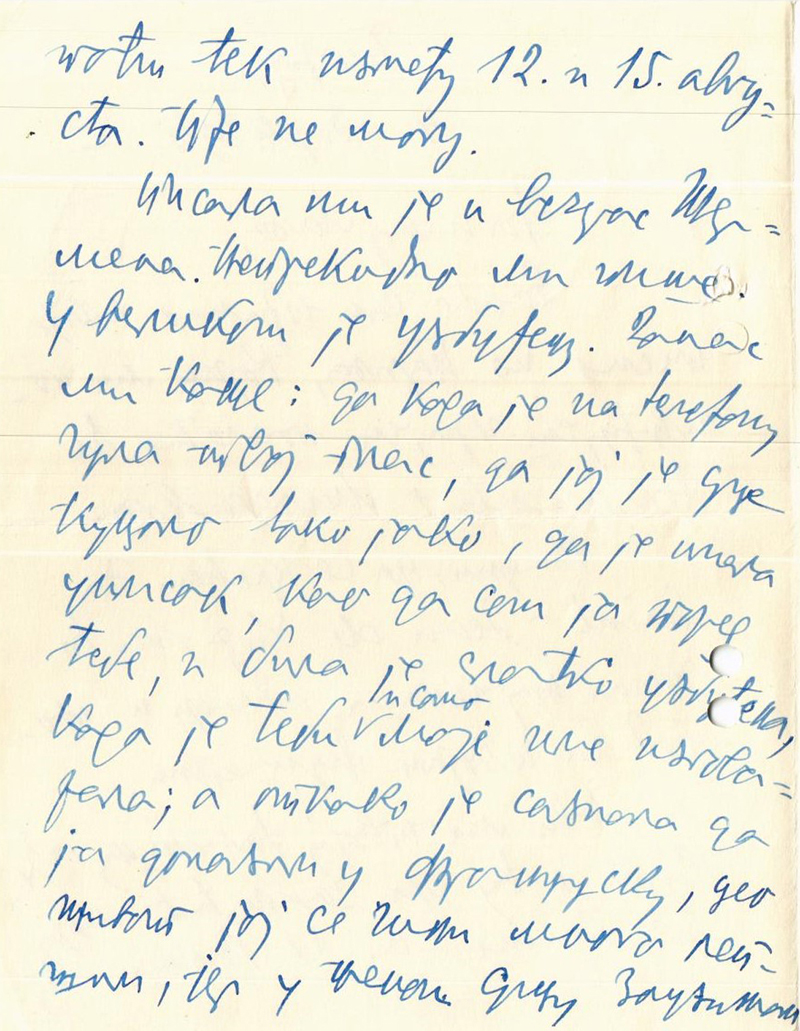 тек између 12. и 15. авгу=
ста. Пре не могу.
Писала ми је и
мена. Непрекидно ми пише.
У великом је узбуђењу. Данас
ми каже: да када је на телефону
чула твој глас, да јој је срце
куцало тако јако, да је имала
утисак, као да сам ја поред
тебе, и била је слатко узбуђена,
када је теби моје име изгова=
рала; а откако је сазнала да
ја долазим у Француску, цео
живот јој се чини много леп-
шим, јер у њеном срцу